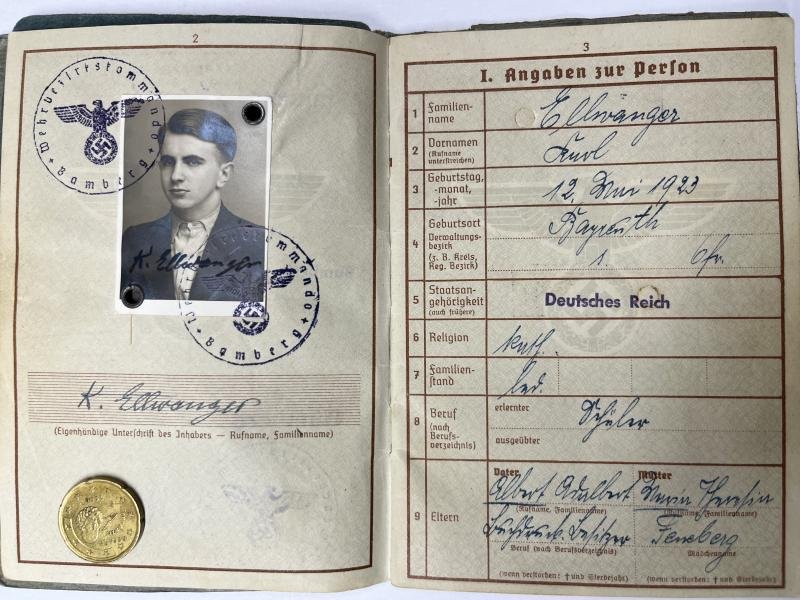 2
Wehrbezirkskommando
Bamberg
K. Ellwanger
Wehrbezirkskommando
Bamberg
K. Ellwanger
(Eigenhändige Unterschrift des Inhabers — Rufname, Familienname)
3
I. Angaben zur Person
1 Familien-
name
Ellwanger
2 Vornamen
(Rufname
unterstreichen)
Karl
3 Geburtstag,
-monat,
-jahr
12. Mai 1923
4 Geburtsort
Verwaltungs-
bezirk
(z. B. Kreis,
Reg. Bezirk)
Bayreuth
5 Staatsan-
gehörigkeit
(auch frühere)
Deutsches Reich
6 Religion
kath.
7 Familien-
stand
led.
8 Beruf
(nach
Berufs-
verzeichnis)
erlernter
Schüler
ausgeübter
9 Eltern
Vater
Mutter
Albert Adalbert
Theresia
(Rufname, Familienname)
(Rufname, Familienname)
Buchdruck. Besitzer
Feneberg
Beruf (nach Berufsverzeichnis)
Mädchenname
(wenn verstorben: † und Sterbejahr)
(wenn verstorben: † und Sterbejahr)